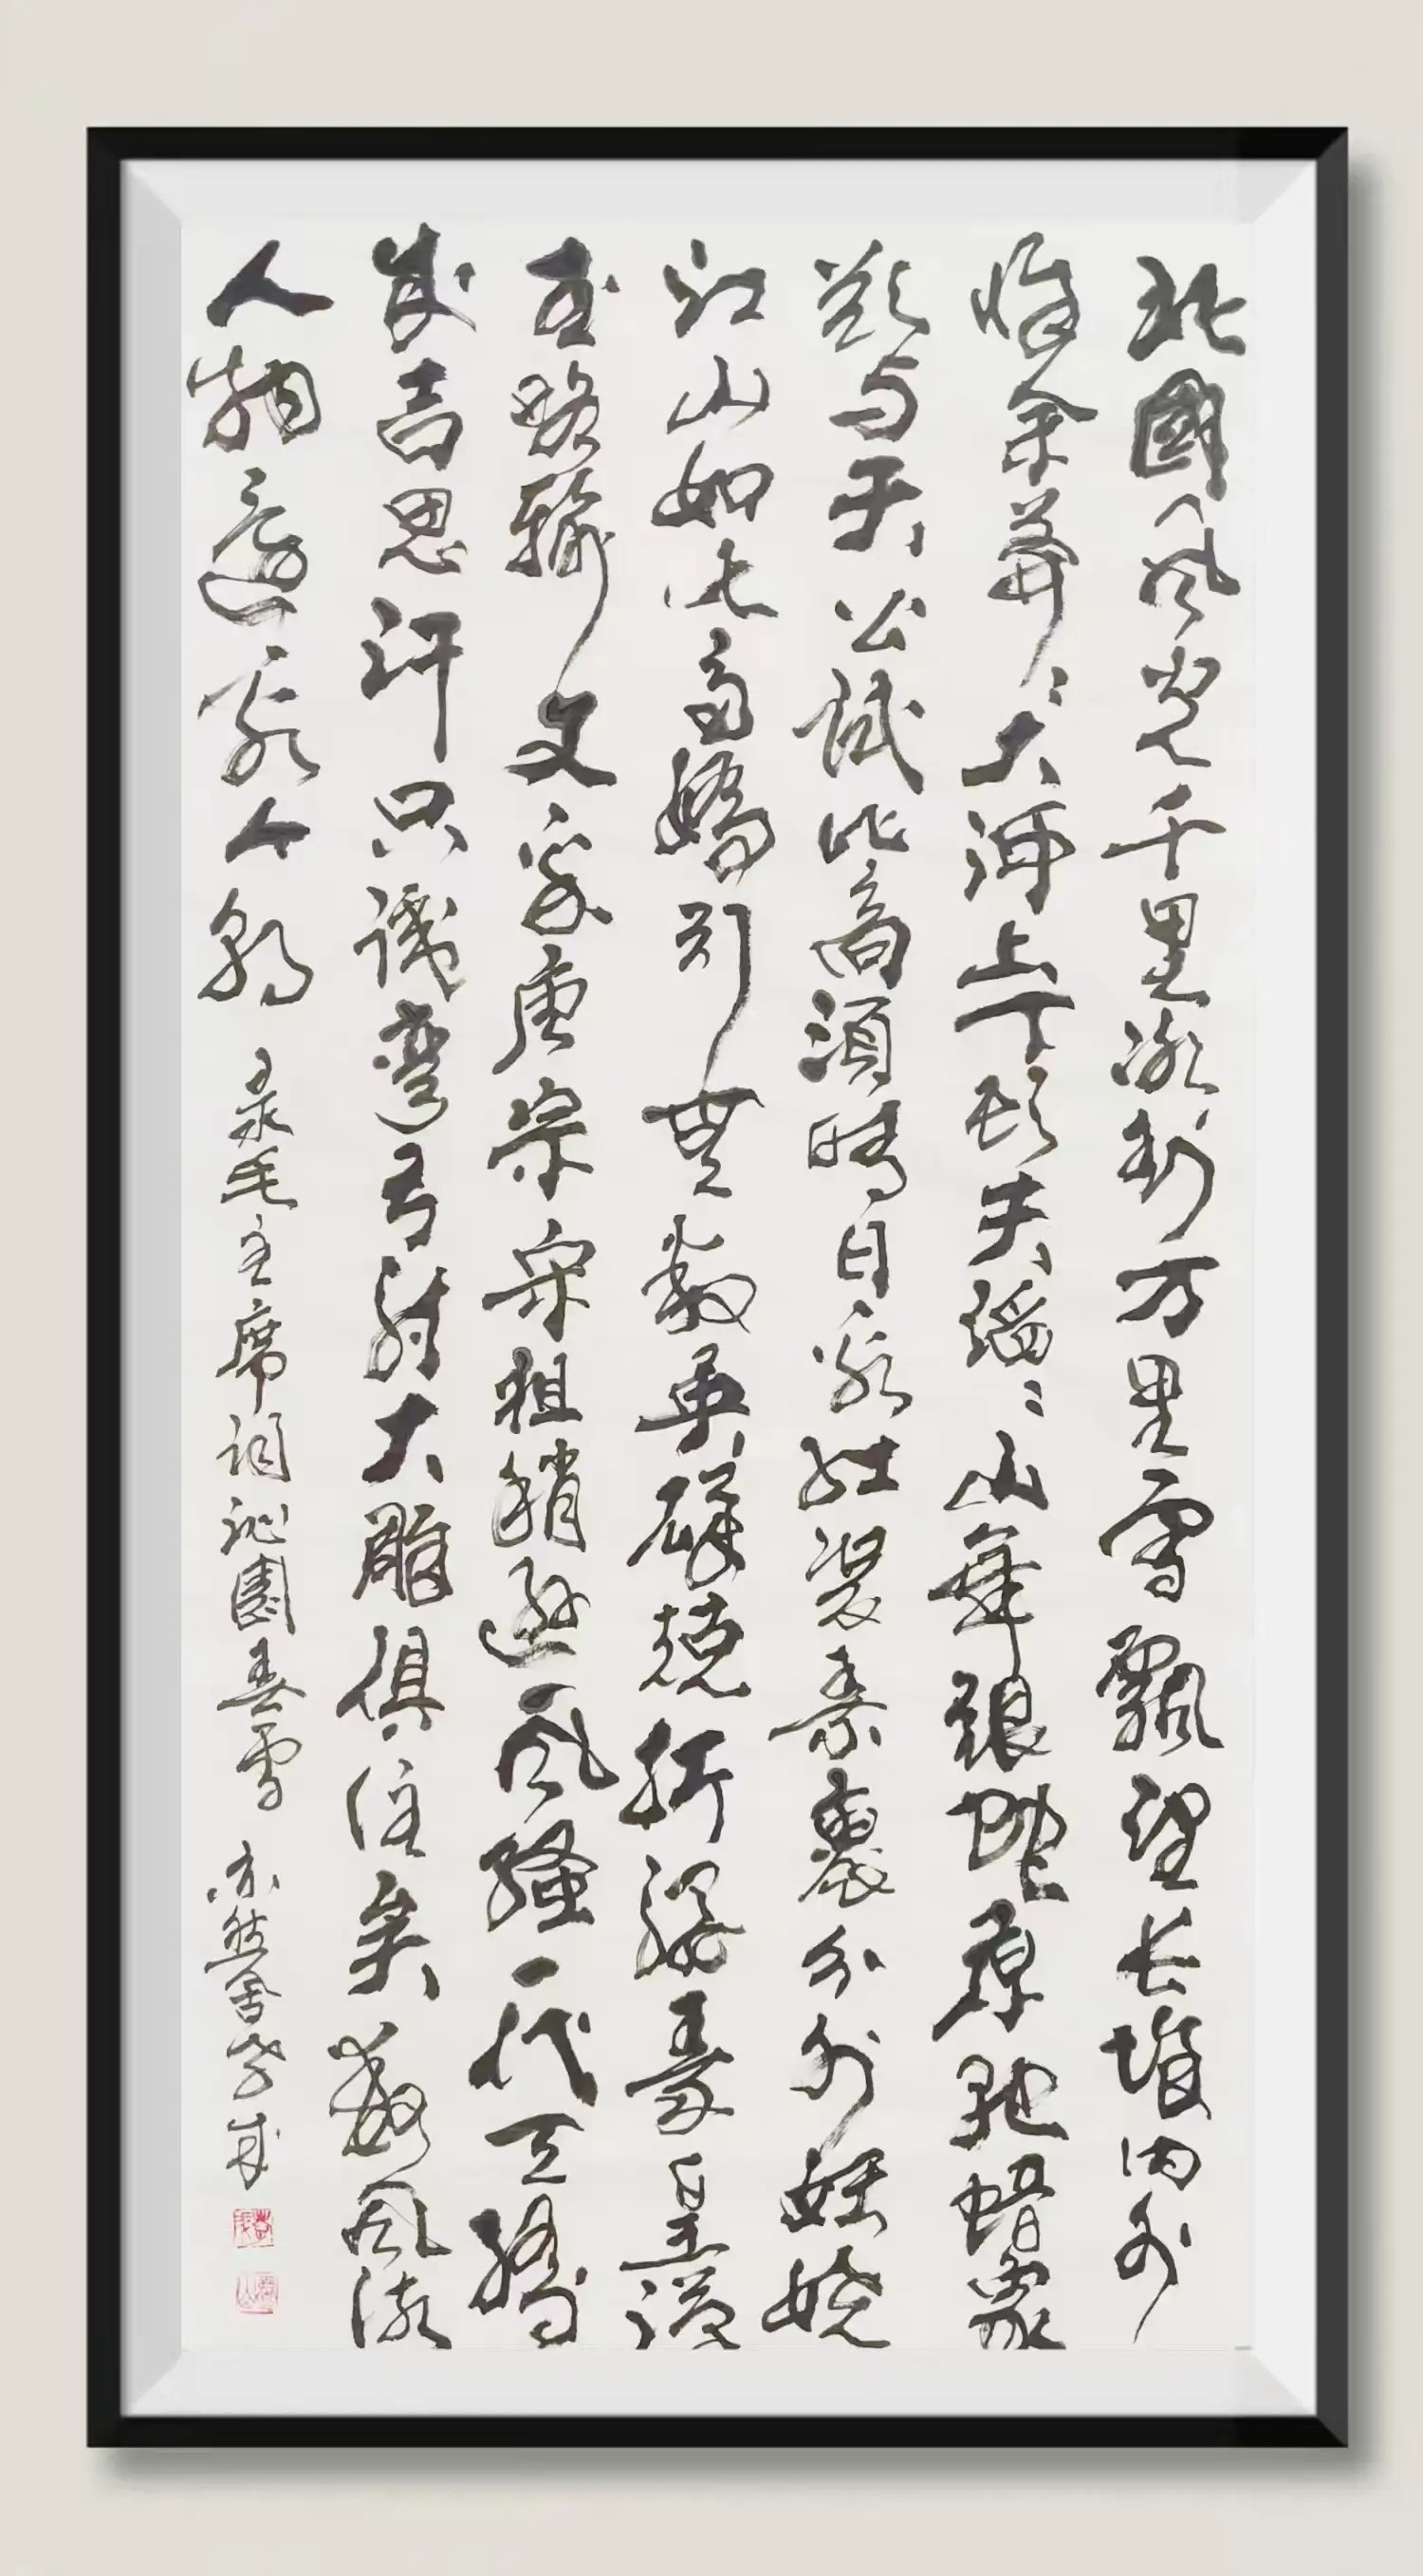 北國风光千里冰封万里雪飄望长城内外
惟余莽〻大河上下頓失滔〻山舞銀蛇原馳蜡象
欲与天公試比高須晴日看紅裝素裹分外妖嬈
江山如此多嬌引無數英雄競折腰秦皇漢
武略輸文采唐宗宋祖稍遜风騷一代天驕
成吉思汗只識彎弓射大雕俱往矣數风流
人物還看今朝 录毛主席詞沁園春雪 亦然